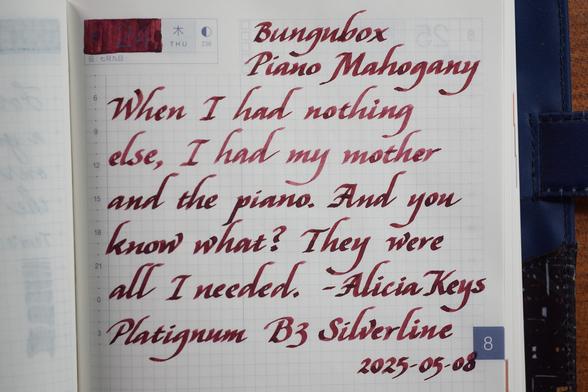 Bungubox
Piano Mahogany
木
THU
When I had nothing
else, I had my mother
and the piano. And you
know what? They were
all I needed. -Alicia Keys
Platignum B3 Silverline
8
2025-05-08
6
9
12
15
18
21
0
3